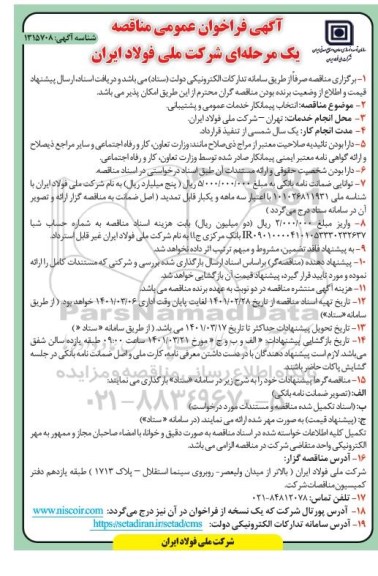 آگهی فراخوان عمومی مناقصه
یک مرحله‌ای شرکت ملی فولاد ایران
شناسه آگهی: ۱۳۱۵۷۰۸
۱- برگزاری مناقصه صرفاً از طریق سامانه تدارکات الکترونیکی دولت (ستاد) می باشد و دریافت اسناد، ارسال پیشنهاد
قیمت و اطلاع از وضعیت برنده بودن مناقصه گران محترم از این طریق امکان پذیر می باشد.
۲- موضوع مناقصه: انتخاب پیمانکار خدمات عمومی و پشتیبانی.
۳- محل انجام خدمات: تهران – شرکت ملی فولاد ایران.
۴- مدت انجام کار: یک سال شمسی از تنفیذ قرارداد.
۵- دارا بودن تائیدیه صلاحیت معتبر از مراجع ذی‌صلاح مانند: وزارت تعاون، کار و رفاه اجتماعی و سایر مراجع ذیصلاح
و ارائه گواهی نامه معتبر ایمنی پیمانکار صادر شده توسط وزارت تعاون، کار و رفاه اجتماعی.
۶- دارا بودن شخصیت حقوقی و ارائه مستندات آن طبق اسناد درخواستی در اسناد مناقصه.
۷- توانایی ضمانت نامه بانکی به مبلغ ۵/۰۰۰/۰۰۰/۰۰۰ ریال (پنج میلیارد ریال) به نام شرکت ملی فولاد ایران با
شناسه ملی ۱۰۱۰۲۶۸۱۱۹۳۱ با اعتبار سه ماهه و یکبار قابل تمدید. (اصل ضمانت به مناقصه گزار ارائه و تصویر
آن در سامانه ستاد درج می‌گردد)
۸- واریز مبلغ ۲/۰۰۰/۰۰۰ ریال (دو میلیون ریال) بابت هزینه اسناد مناقصه به شماره حساب شبا
بانک مرکزی ج.ا.ا به نام شرکت ملی فولاد ایران غیر قابل استرداد.
۹- به پیشنهاد فاقد تضمین، مشروط و مبهم ترتیب اثر داده نخواهد شد.
۱۰- پیشنهاد دهنده (مناقصه‌گر) براساس اسناد ارسال بارگذاری شده بررسی و شرکتی که مستندات کامل را ارائه
نموده و مورد تایید قرار گیرد، پیشنهاد قیمت آن بازگشایی خواهد شد.
۱۱- هزینه آگهی منتشره مناقصه در دو نوبت به عهده برنده مناقصه می باشد.
۱۲- تاریخ تهیه اسناد مناقصه از تاریخ ۱۴۰۱/۰۲/۲۸ لغایت پایان وقت اداری ۱۴۰۱/۰۳/۰۶ خواهد بود. (از طریق
سامانه «ستاد»)
۱۳- تاریخ تحویل پیشنهادات حداکثر تا تاریخ ۱۴۰۱/۰۳/۱۷ می باشد. (از طریق سامانه « ستاد »)
۱۴- تاریخ بازگشایی پیشنهادات « الف و ب و ج » مورخ ۱۴۰۱/۰۳/۲۱ ساعت ۰۹:۰۰ طبقه یازده سالن شفق
می‌باشد. لازم است پیشنهاد دهندگان با در دست داشتن معرفی نامه، کارت ملی و اصل ضمانت نامه بانکی در جلسه
گشایش پاکات حاضر باشند.
۱۵- مناقصه‌گرها پیشنهادات خود را به شرح زیر در سامانه «ستاد» بارگذاری می نمایند:
الف: (تصویر ضمانت نامه بانکی)
ب: (اسناد تکمیل شده مناقصه و مستندات مورد درخواست)
ج: (پیشنهاد قیمت) به صورت مهر شده ارائه می نمایند. (در سامانه « ستاد»)
تکمیل کلیه اطلاعات خواسته شده در اسناد مناقصه به صورت دقیق و خوانا، با امضاء صاحبان مجاز و ممهور به مهر
الکترونیکی واحد متقاضی شرکت در مناقصه الزامی می باشد.
۱۶- آدرس مناقصه گزار:
شرکت ملی فولاد ایران (بالاتر از میدان ولیعصر- روبروی سینما استقلال – پلاک ۱۷۱۳) طبقه یازدهم دفتر
کمیسیون مناقصات شرکت.
۱۷- تلفن تماس: ۸۴۸۱۲۰۷۸-۰۲۱
۱۸- آدرس پورتال شرکت که یک نسخه از فراخوان در آن نیز درج می‌گردد: www.niscoir.com
۱۹- آدرس سامانه تدارکات الکترونیکی دولت: https://setadiran.ir/setad/cms
شرکت ملی فولاد ایران